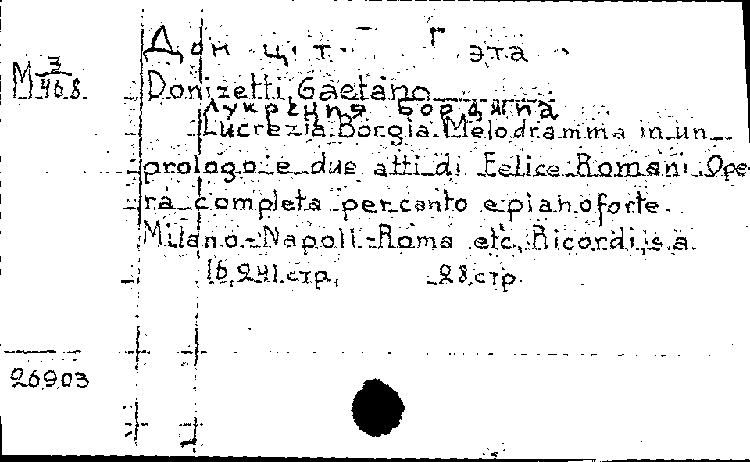 M 3/468
Donizetti, Gaetano
Лукреция Борджиа
Lucrezia Borgia. Melodramma in un
prologo e due atti di Felice Romani. Ope-
ra completa per canto e pianoforte.
Milano-Napoli-Roma etc, Ricordi, s.a.
стр. 28 стр.
26903